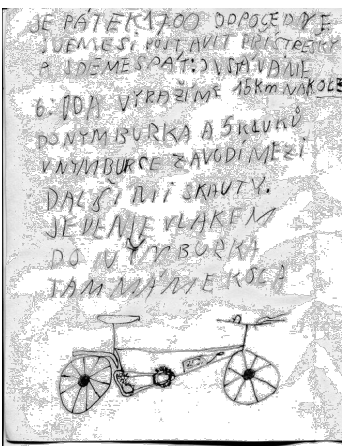 JE PÁTEK 1700 ODPOLEDNE
JDEME SI POSTAVIT PŘÍSTŘEŠKY
A JDEME SPÁT. VSTÁVÁNÍE
6. VYRAŽÍME 15 Km NA KOLE
DO NYMBURKA A 5 KLUKŮ
V NYMBURCE ZÁVODÍ MEZI
DALŠÍMI SKAUTY.
JEDEME VLAKEM
DO NYMBURKA
TAM MÁME KOLA